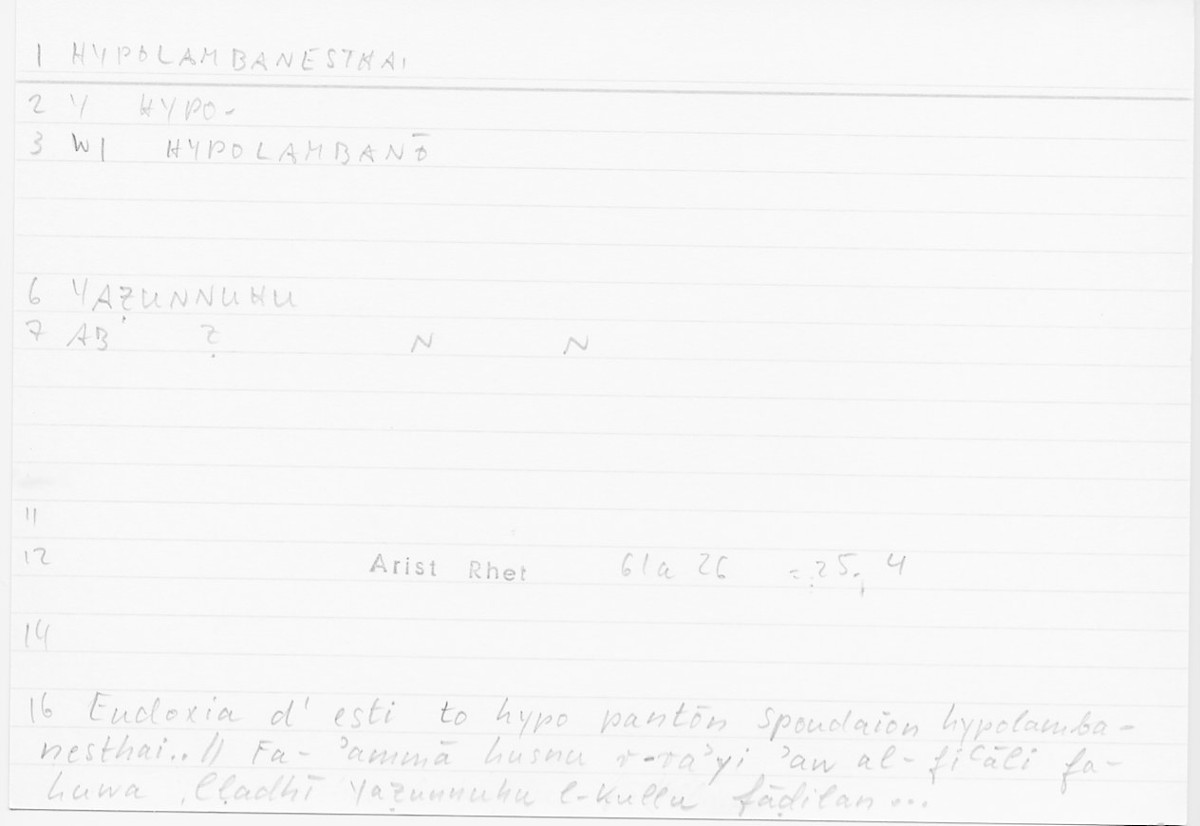 1 HYPOLAMBANESTHAI
2 Y HYPO-
3 W1 HYPOLAMBANŌ
6 YAẒUNNUHU
7 AB Ẓ N N
11
12 Arist Rhet 61a 26 = 25, 4
14
16 Eudoxia d' esti to hypo pantōn spoudaion hypolamba-
nesthai..// Fa- ʾammā husnu r-raʾyi ʾaw al-fiʿāli fa-
huwa lladhī yaẓunnuhu l-kullu fāḍilan...